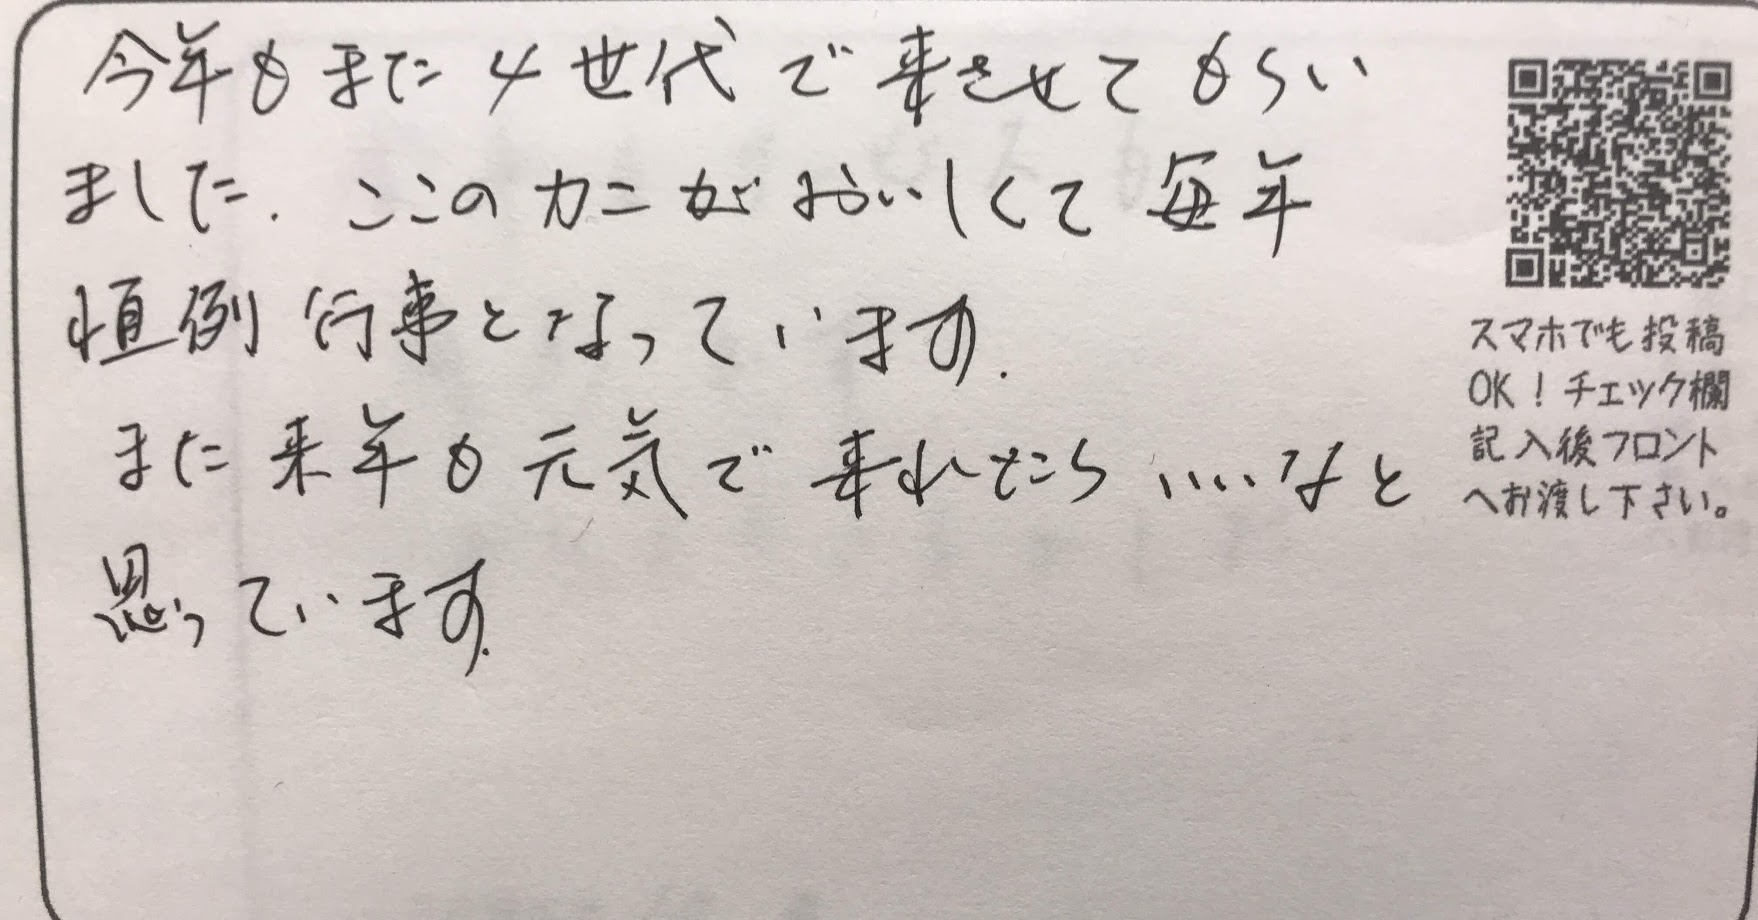 今年もまた4世代で来させてもらい
ました. ここのカニがおいしくて毎年
恒例行事となっています.
また来年も元気で来れたらいいなと
思っています.
スマホでも投稿
OK！チェック欄
記入後フロント
へお渡し下さい。